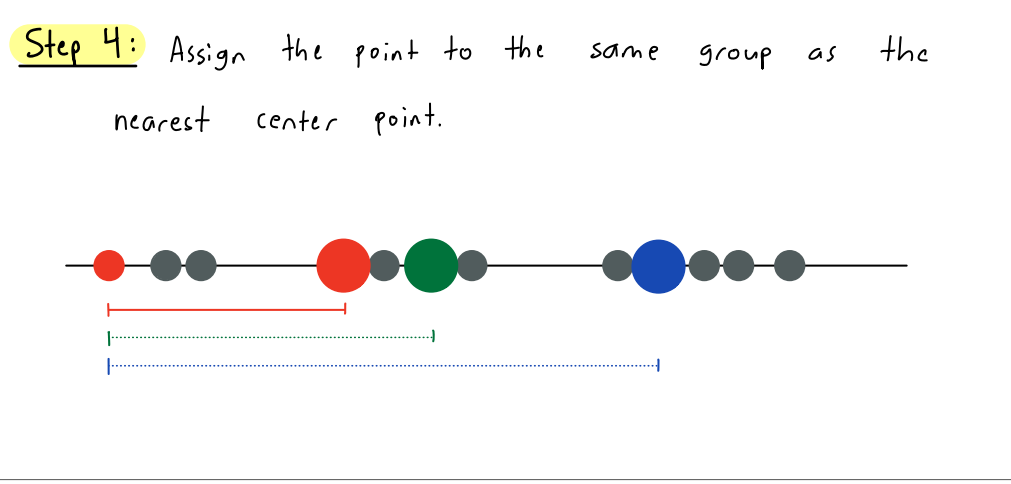 Step 4: Assign the point to the same group as the
nearest center point.